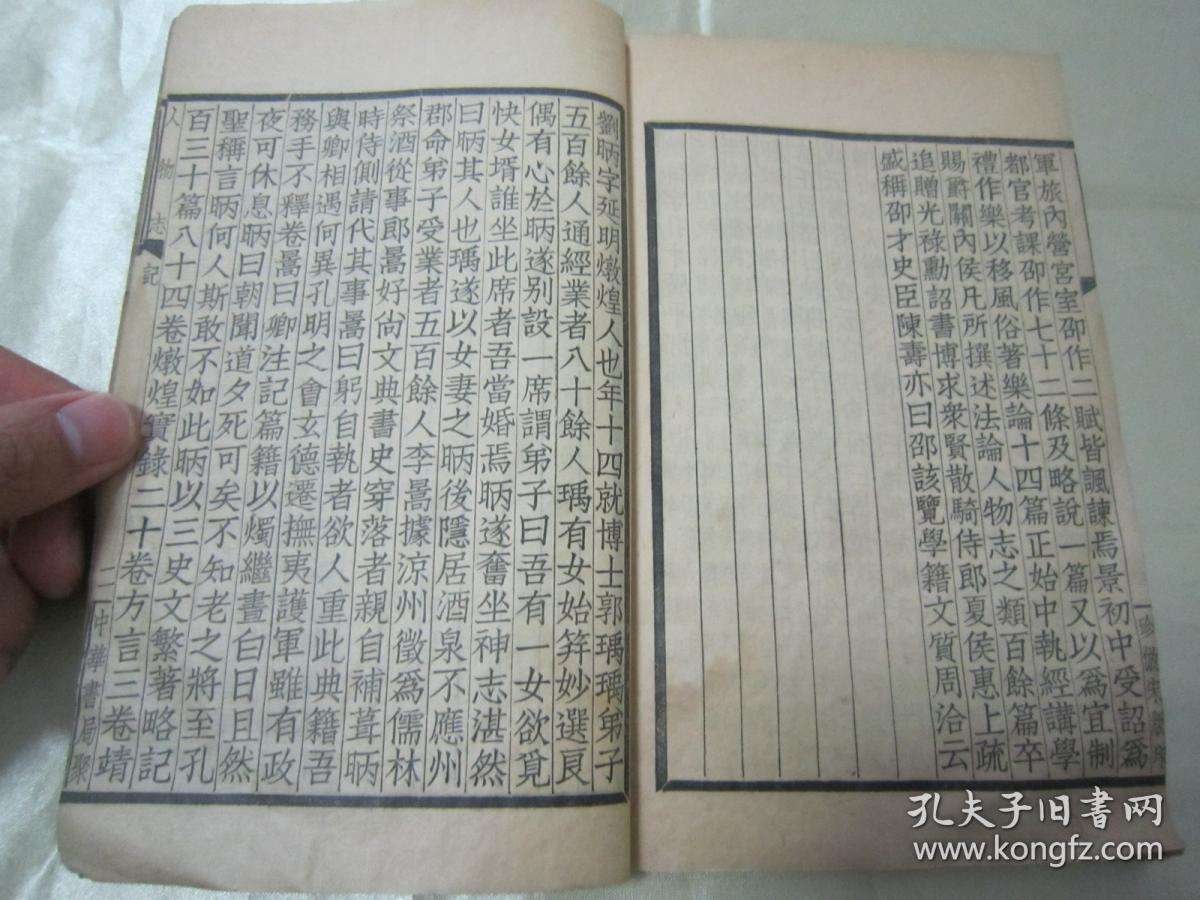 軍旅內營宮室卲作二賦皆諷諫焉景初中受詔爲
都官考課卲作七十二條及略說一篇又以爲宜制
禮作樂以移風俗著樂論十四篇正始中執經講學
賜爵關內侯凡所撰述法論人物志之類百餘篇卒
追贈光祿勳詔書博求衆賢散騎侍郎夏侯惠上疏
盛稱卲才史臣陳壽亦曰卲該覽學籍文質周洽云
劉昞字延明燉煌人也年十四就博士郭瑀瑀弟子
五百餘人通經業者八十餘人瑀有女始笄妙選良
偶有心於昞遂別設一席謂弟子曰吾有一女欲覓
快女壻誰坐此席者吾當婚焉昞遂奮坐神志湛然
曰昞其人也瑀遂以女妻之昞後隱居酒泉不應州
郡命弟子受業者五百餘人李暠據涼州徵爲儒林
祭酒從事郎暠好尙文典書史穿落者親自補葺昞
時侍側請代其事暠曰躬自執者欲人重此典籍吾
與卿相遇何異孔明之會玄德遷撫夷護軍雖有政
務手不釋卷暠曰卿注記篇籍以燭繼晝白日且然
夜可休息昞曰朝聞道夕死可矣不知老之將至孔
聖稱言昞何人斯敢不如此昞以三史文繁著略記
百三十篇八十四卷燉煌實錄二十卷方言三卷靖
人物志 記 二 中華書局聚
孔夫子旧书网
www.kongfz.com